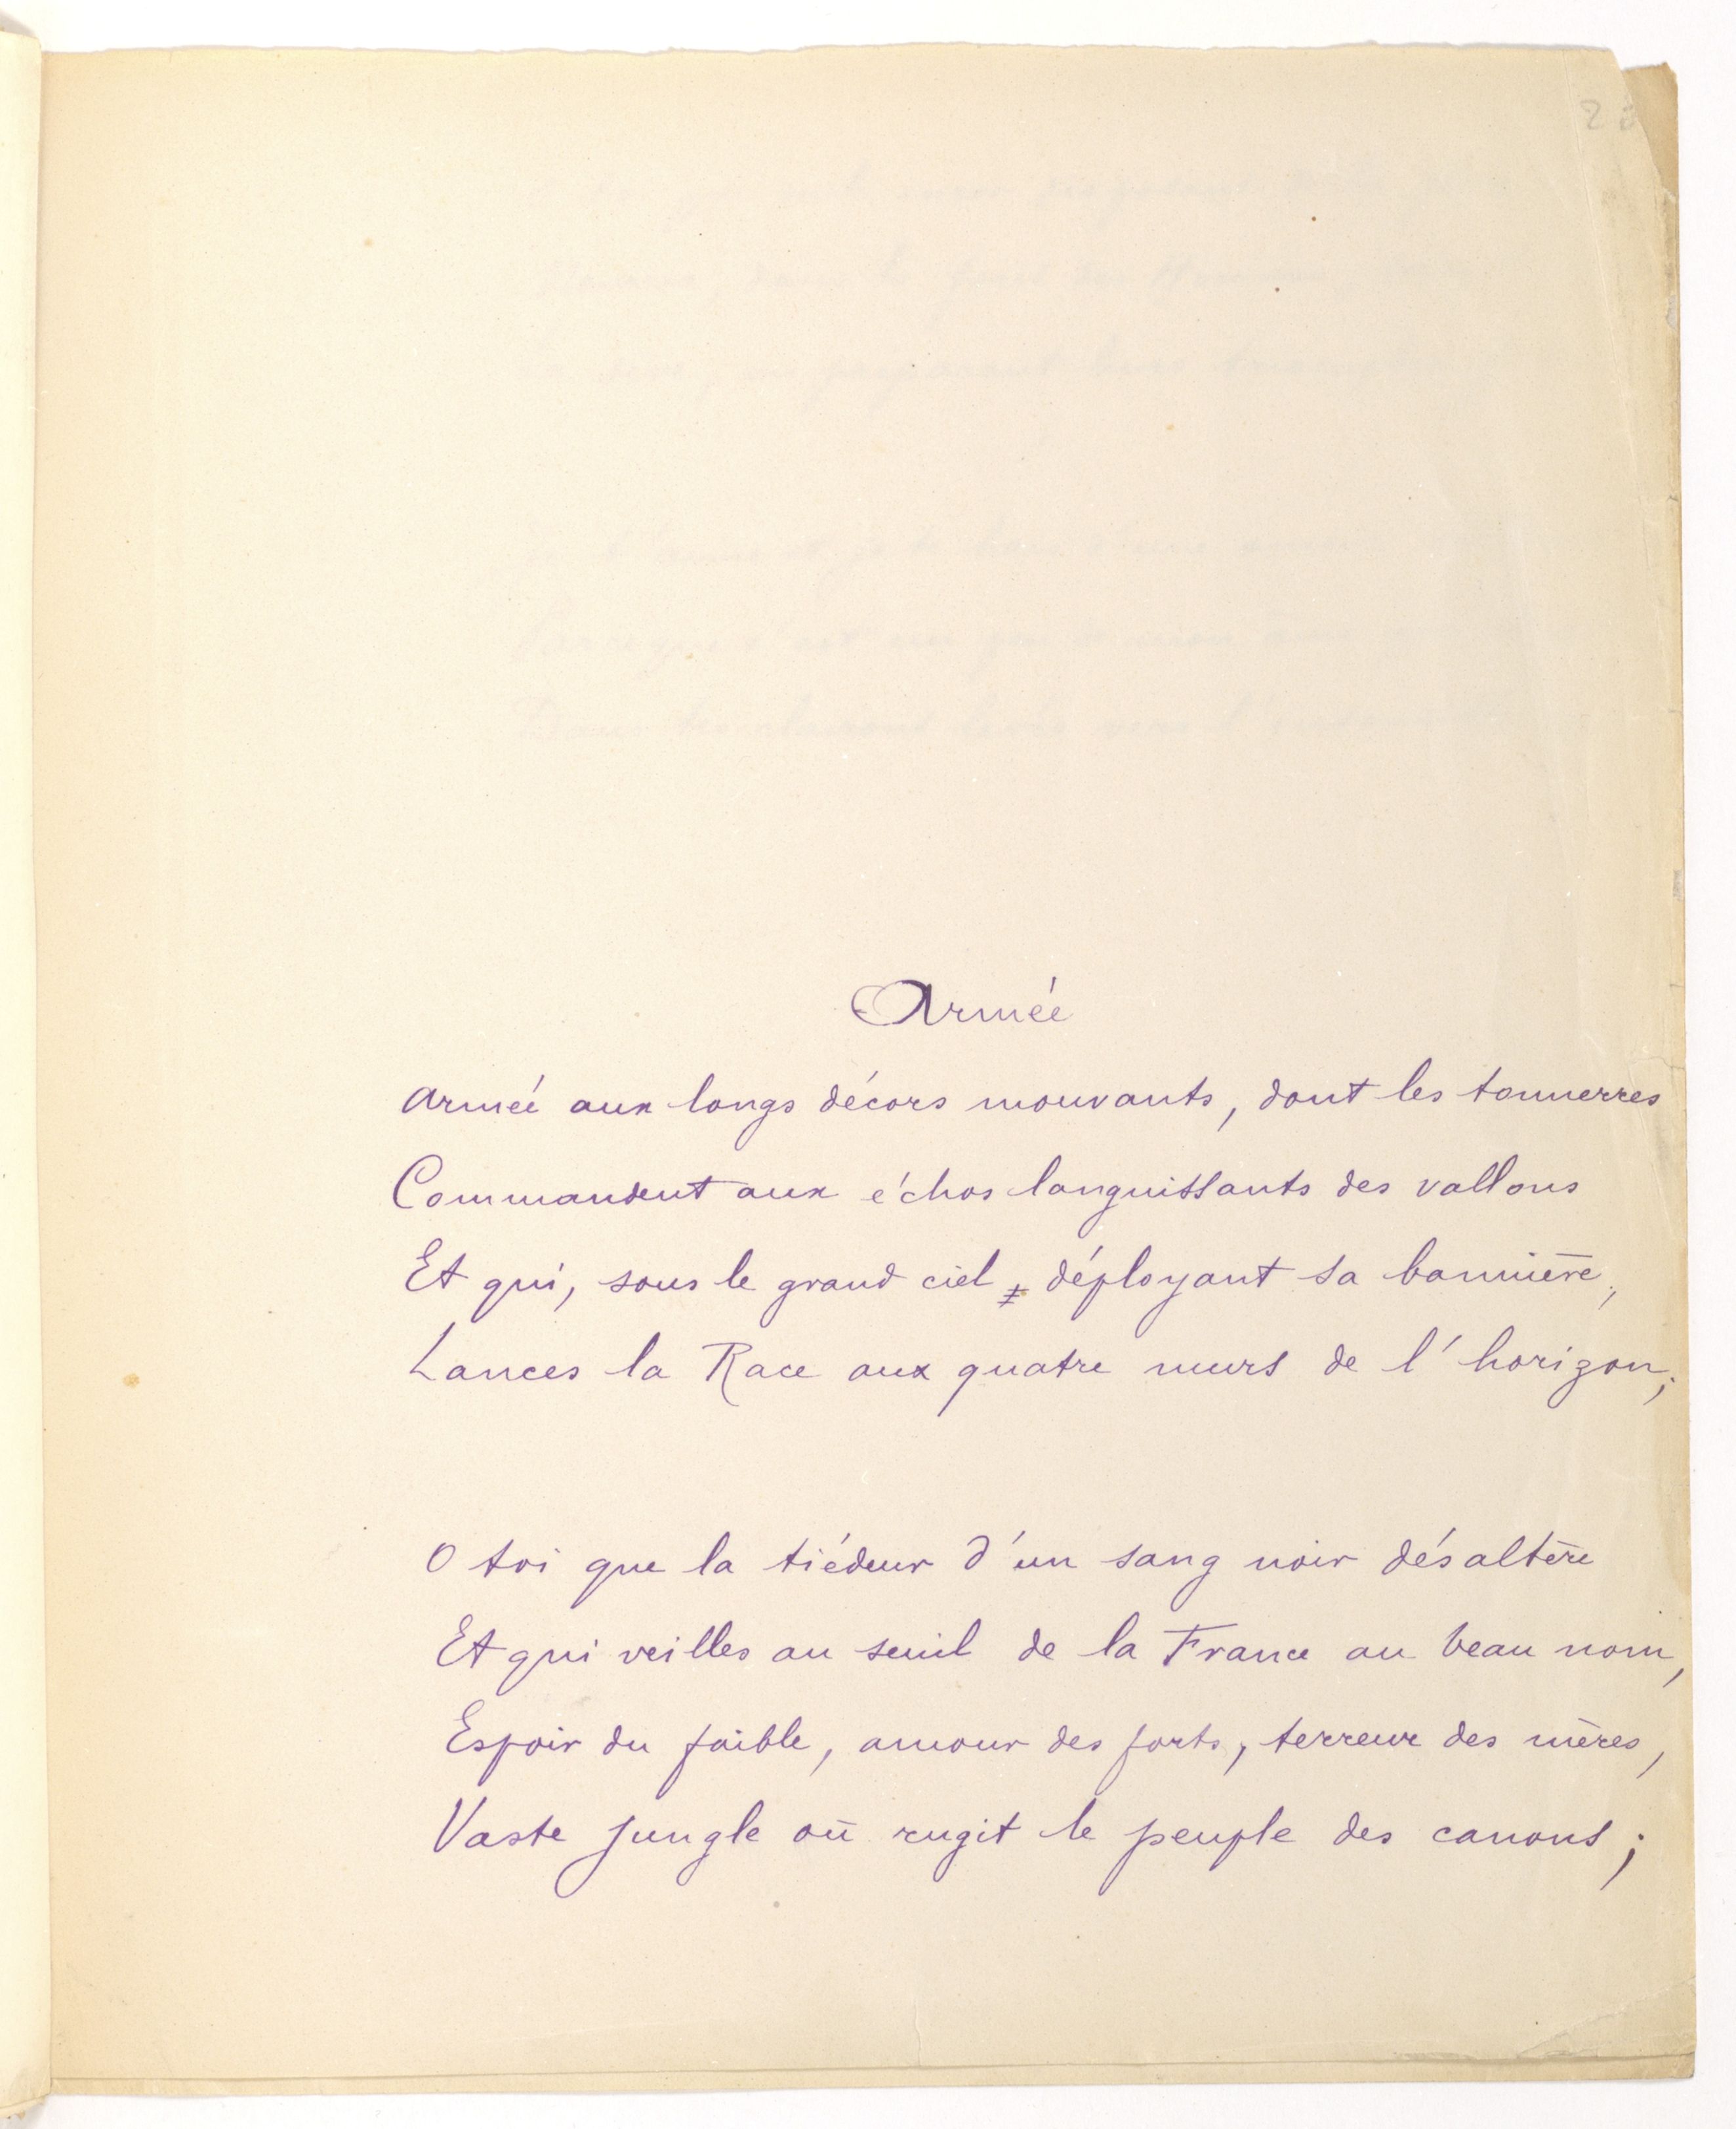 Armée
Armée aux longs décors mouvants, dont les tonnerres
Commandent aux échos languissants des vallons
Et qui, sous le grand ciel déployant sa bannière,
Lances la Race aux quatre murs de l'horizon;
O toi que la tiédeur d'un sang noir désaltère
Et qui veilles au seuil de la France au beau nom,
Espoir du faible, amour des forts, terreur des mères,
Vaste jungle où rugit le peuple des canons;